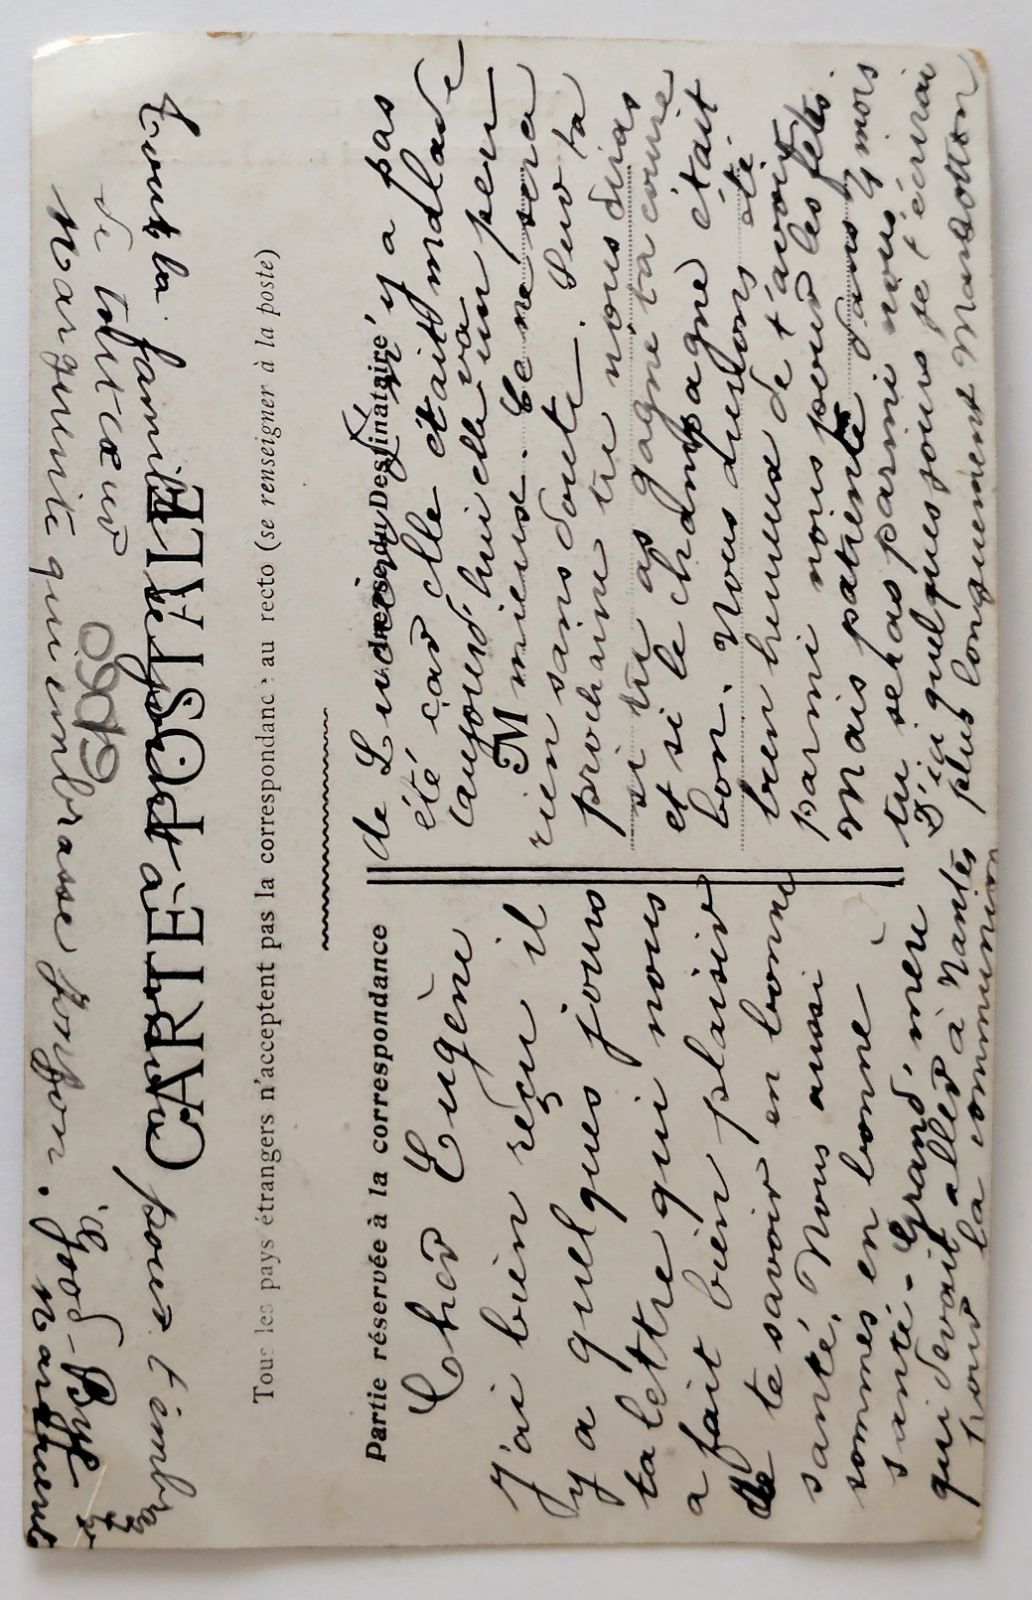 CARTE POSTALE
Tous les pays étrangers n'acceptent pas la correspondance au recto (se renseigner à la poste)
Partie réservée à la correspondance
Adresse du Destinataire
M
Cher Eugène
J'ai bien reçu il
y a quelques jours
ta lettre qui nous
a fait bien plaisir
de te savoir en bonne
santé. Nous aussi
sommes en bonne
santé - Grand, mère
qui devait aller à Nantes
pour la communion
de Lucien n'y a pas
été car elle était malade
aujourd'hui elle va un peu
mieux. Ce ne sera
rien sans doute. Sur ta
prochaine tu nous diras
si tu as gagné ta course
et si le champagne était
bon. Nous aurions été
bien heureux de t'avoir
parmi nous pour les fêtes
Mais patiente dans 4 mois
tu seras parmi nous
D'ici quelques jours je t'écrirai
plus longuement
Toute la famille se joint à
pour t'embrasser
de tout cœur
Marguerite qui embrasse
Good-Bye